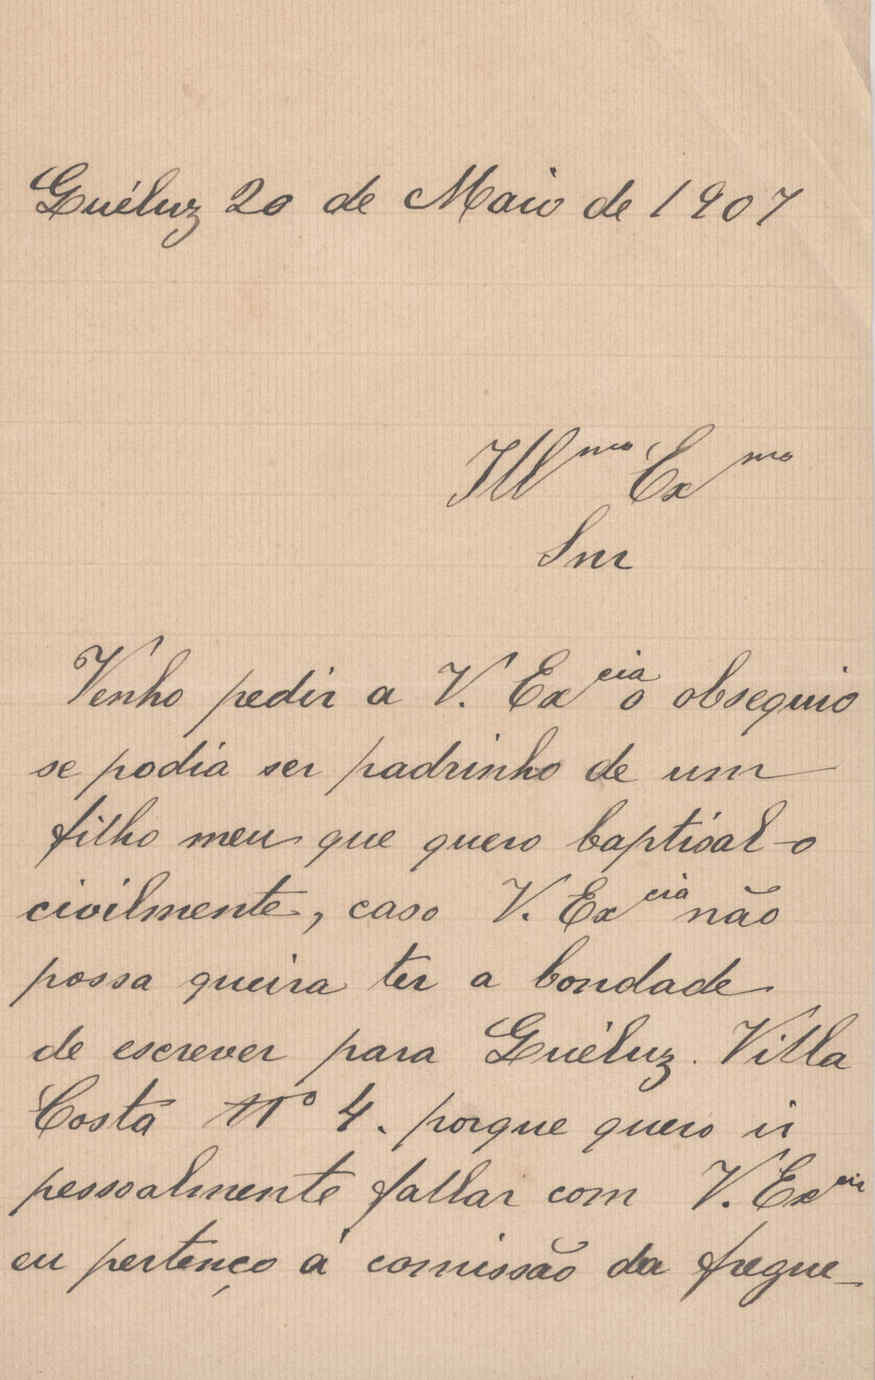 Quéluz 20 de Maio de 1907
Illmo Exmo
Snr
Venho pedir a V. Excia o obsequio
se podia ser padrinho de um
filho meu que quero baptisal-o
civilmente, caso V. Excia não
possa queira ter a bondade
de escrever para Quéluz. Villa
Costa Nº 4. porque quero ir
pessoalmente fallar com V. Excia
eu pertenço á comissão da fregue-